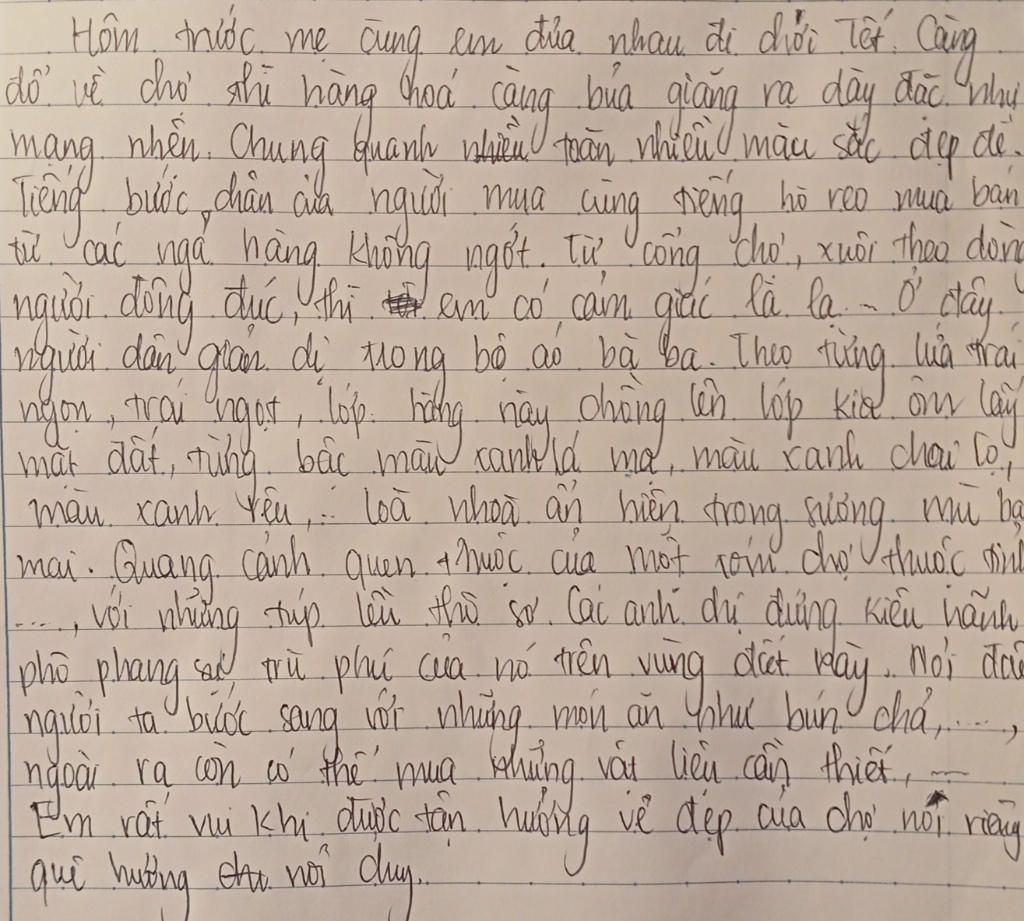 Hôm trước mẹ cùng em đưa nhau đi chơi Tết. Càng
đổ về chợ thì hàng hoá càng bủa giăng ra dày đặc như
mạng nhện. Chung quanh toàn nhiều màu sắc đẹp đẽ.
Tiếng bước chân của người mua cùng tiếng hò reo mua bán
từ các ngả hàng không ngớt. Từ cổng chợ, xuôi theo dòng
người đông đúc, thì em có cảm giác là lạ... Ở đây
người dân giản dị trong bộ áo bà ba. Theo từng lứa trái
ngon, trái ngọt, lớp hàng này chồng lên lớp kia ôm lấy
mặt đất, từng bậc màu xanh lá mạ, màu xanh chai lọ,
màu xanh rêu,... loà nhoà ẩn hiện trong sương mù ban
mai. Quang cảnh quen thuộc của một xóm chợ thuộc tỉnh
...., với những túp lều thô sơ. Các anh chị đứng kiêu hãnh
phô phang sự trù phú của nó trên vùng đất này. Nơi đâu
người ta bước sang với những món ăn như bún chả,....,
ngoài ra còn có thể mua những vật liệu cần thiết,...
Em rất vui khi được tận hưởng vẻ đẹp của chợ nơi riêng
quê hương nơi duy.